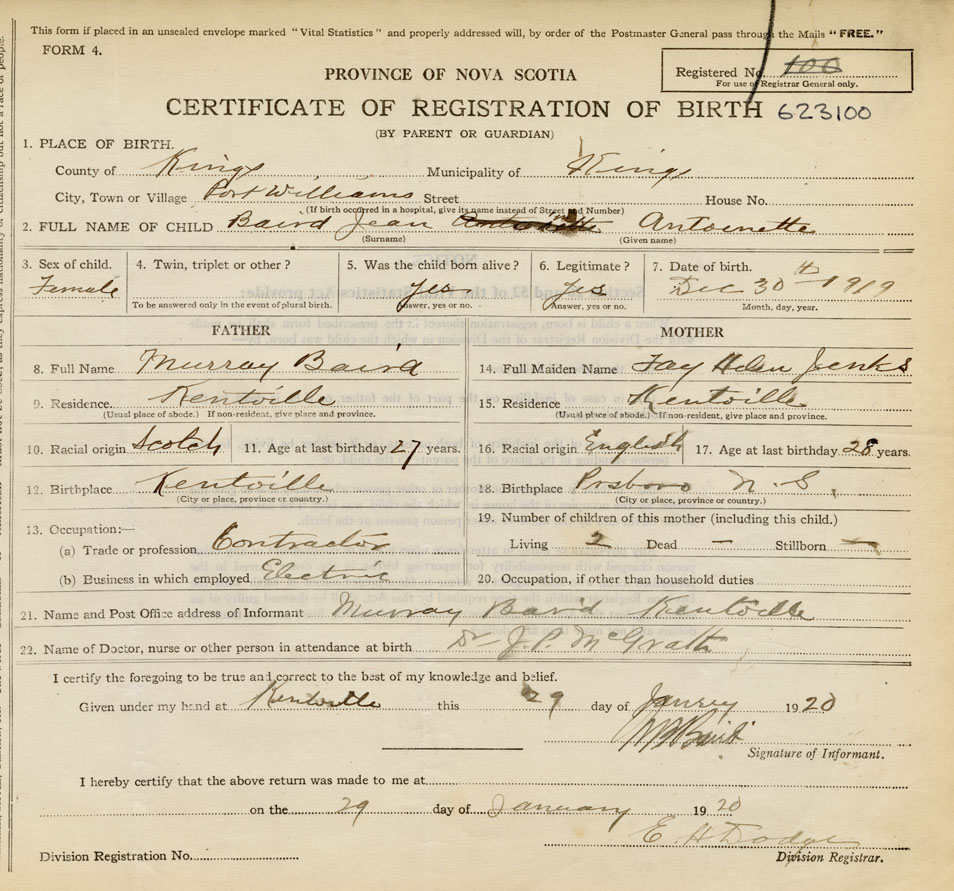 This form if placed in an unsealed envelope marked "Vital Statistics" and properly addressed will, by order of the Postmaster General pass through the Mails "FREE."
FORM 4.
PROVINCE OF NOVA SCOTIA
Registered No. 100
For use of Registrar General only.
CERTIFICATE OF REGISTRATION OF BIRTH 623100
(BY PARENT OR GUARDIAN)
1. PLACE OF BIRTH.
County of Kings Municipality of Kings
City, Town or Village Port Williams Street House No.
(If birth occurred in a hospital, give its name instead of Street and Number)
2. FULL NAME OF CHILD Baird Jean Antoinette
(Surname) (Given name)
3. Sex of child. 4. Twin, triplet or other? 5. Was the child born alive? 6. Legitimate? 7. Date of birth.
Female Yes Yes Dec 30th 1919
To be answered only in the event of plural birth. Answer, yes or no. Answer, yes or no. Month, day, year.
FATHER MOTHER
8. Full Name Murray Baird 14. Full Maiden Name Fay Helen Jenks
9. Residence. Kentville 15. Residence Kentville
(Usual place of abode.) If non-resident, give place and province. (Usual place of abode.) If non-resident, give place and province.
10. Racial origin Scotch 11. Age at last birthday 27 years. 16. Racial origin English 17. Age at last birthday 28 years.
12. Birthplace Kentville 18. Birthplace Prsboro N.S.
(City or place, province or country.) (City or place, province or country.)
13. Occupation:— 19. Number of children of this mother (including this child.)
(a) Trade or profession Contractor Living 2 Dead – Stillborn –
(b) Business in which employed Electric 20. Occupation, if other than household duties
21. Name and Post Office address of Informant Murray Baird Kentville
22. Name of Doctor, nurse or other person in attendance at birth Dr J. P. McGrath
I certify the foregoing to be true and correct to the best of my knowledge and belief.
Given under my hand at Kentville this 29 day of Janury 1920
M Baird
Signature of Informant.
I hereby certify that the above return was made to me at
on the 29 day of January 1920
E. H Dodge
Division Registration No. Division Registrar.